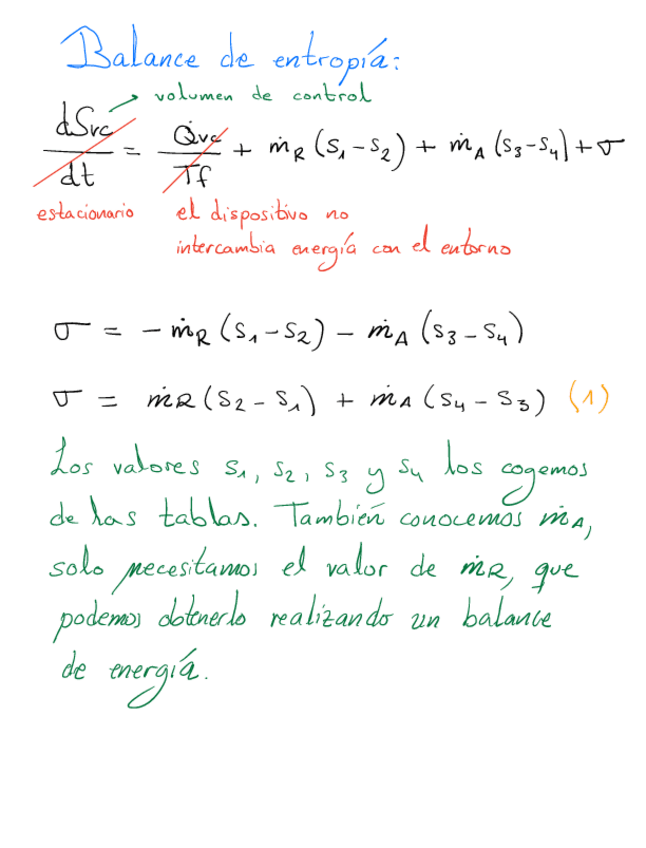 Balance de entropía:
volumen de control
dSvc/dt = Q̇vc/Tf + ṁR (s1 - s2) + ṁA (s3 - s4) + σ
estacionario
el dispositivo no
intercambia energía con el entorno
σ = - ṁR (s1 - s2) - ṁA (s3 - s4)
σ = ṁR (s2 - s1) + ṁA (s4 - s3) (1)
Los valores s1, s2, s3 y s4 los cogemos
de las tablas. También conocemos ṁA,
solo necesitamos el valor de ṁR, que
podemos obtenerlo realizando un balance
de energía.